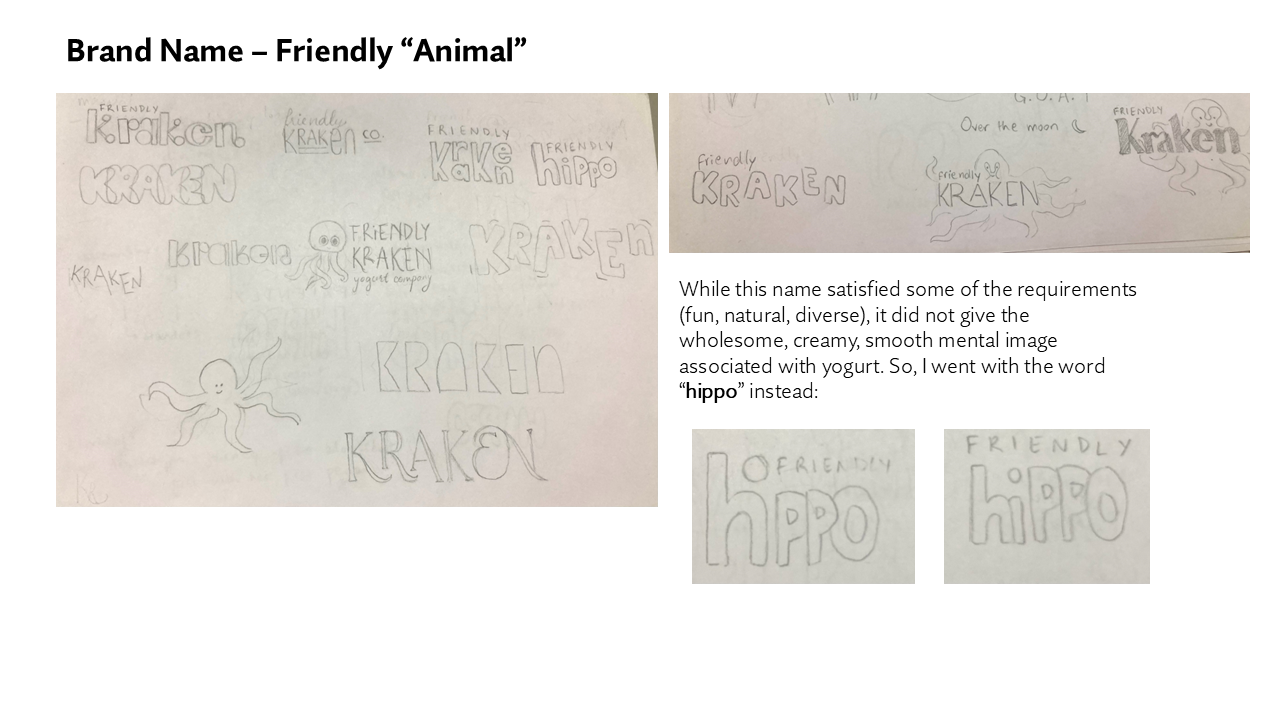 Brand Name – Friendly “Animal”
FRIENDLY
Kraken
friendly
KRAKEN CO.
FRIENDLY
Kr Ke
ak n
FRIENDLY
hippo
KRAKEN
Kraken
FRIENDLY
KRAKEN
yogurt company
KRAKEN
KRAKEN
KRAKEN
KRAKEN
G.O.A.T
Over the moon
FRIENDLY
Kraken
friendly
KRAKEN
friendly
KRAKEN
While this name satisfied some of the requirements
(fun, natural, diverse), it did not give the
wholesome, creamy, smooth mental image
associated with yogurt. So, I went with the word
“hippo” instead:
FRIENDLY
hiPPO
FRIENDLY
hiPPO